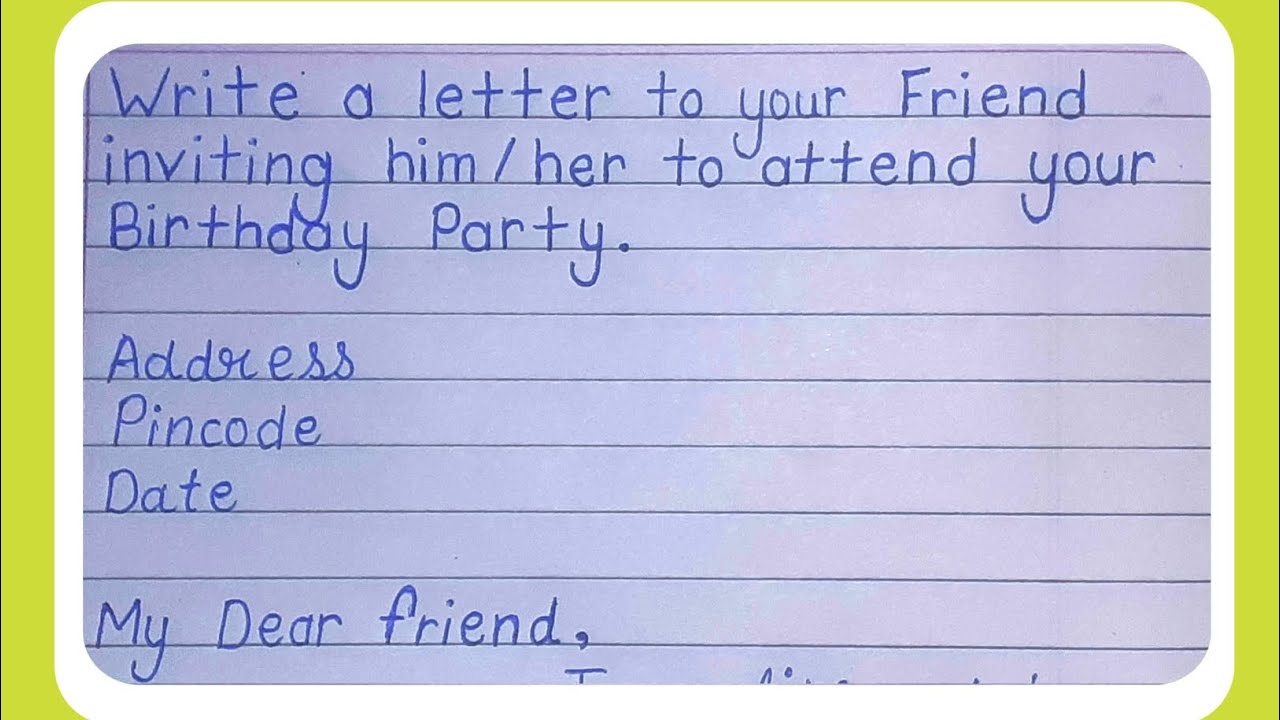 Write a letter to your Friend
inviting him/her to attend your
Birthday Party.
Address
Pincode
Date
My Dear friend,